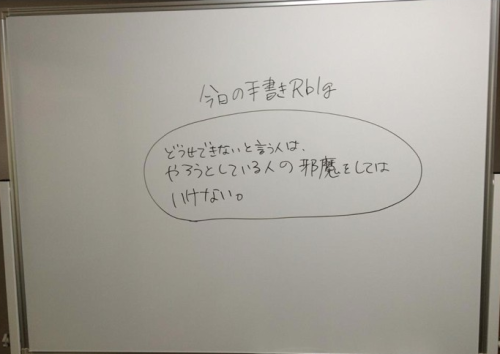 今日の手書きRblg
どうせできないと言う人は、
やろうとしている人の邪魔をしては
いけない。